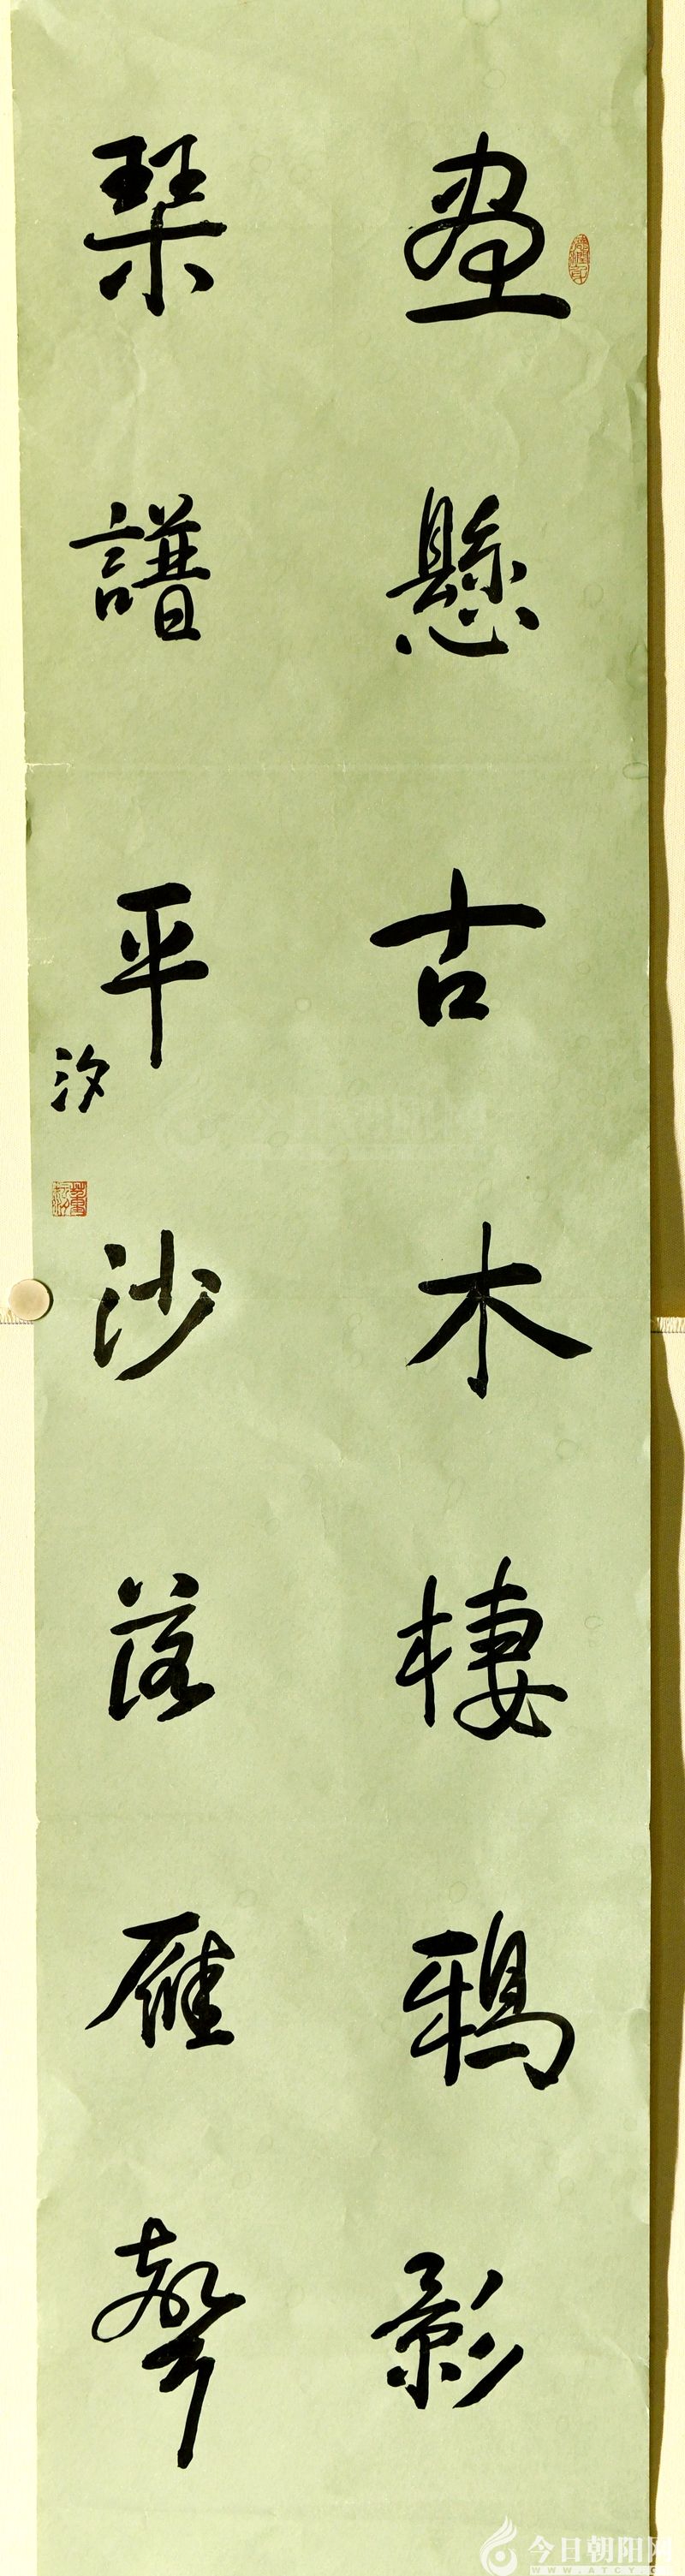 畫懸古木棲鴉影
琴譜平沙落雁聲
汐
今日朝阳网
WWW.ATCY.COM